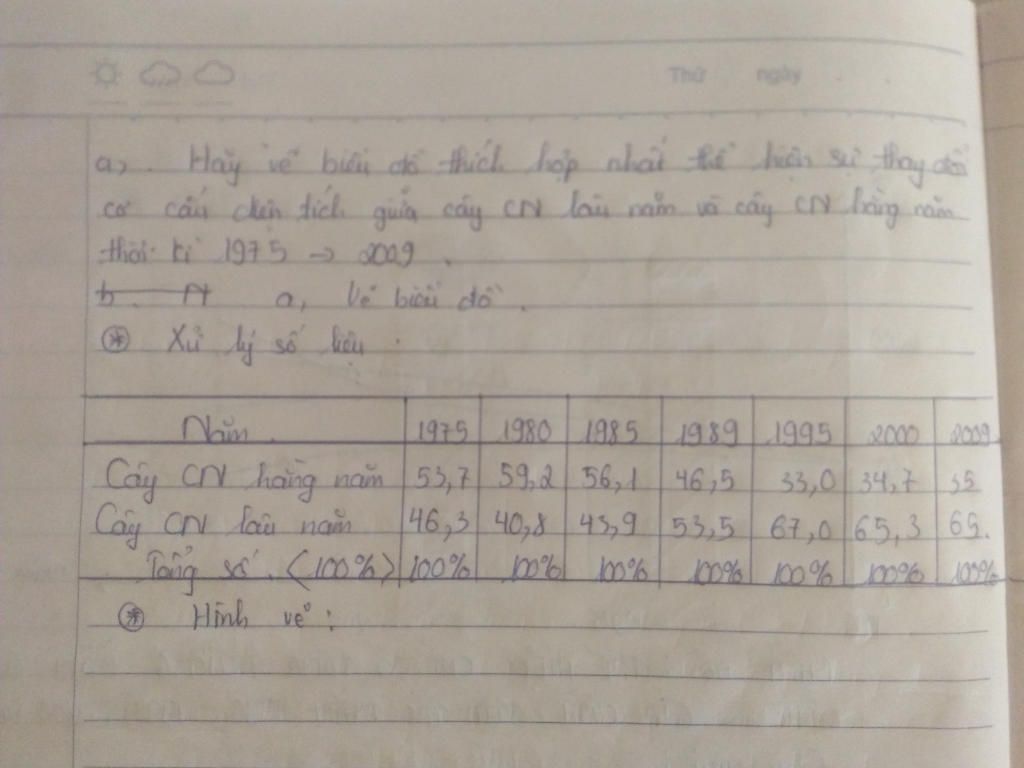 Thứ ngày
a, . Hãy vẽ biểu đồ thích hợp nhất thể hiện sự thay đổi
cơ cấu diện tích giữa cây CN lâu năm và cây CN hằng năm
thời kì 1975 → 2009 .
b. N a, Vẽ biểu đồ .
* Xử lý số liệu :
Năm 1975 1980 1985 1989 1995 2000 2009
Cây CN hằng năm 53,7 59,2 56,1 46,5 33,0 34,7 35
Cây CN lâu năm 46,3 40,8 43,9 53,5 67,0 65,3 65.
Tổng số. (100%) 100% 100% 100% 100% 100% 100% 100%
* Hình vẽ :